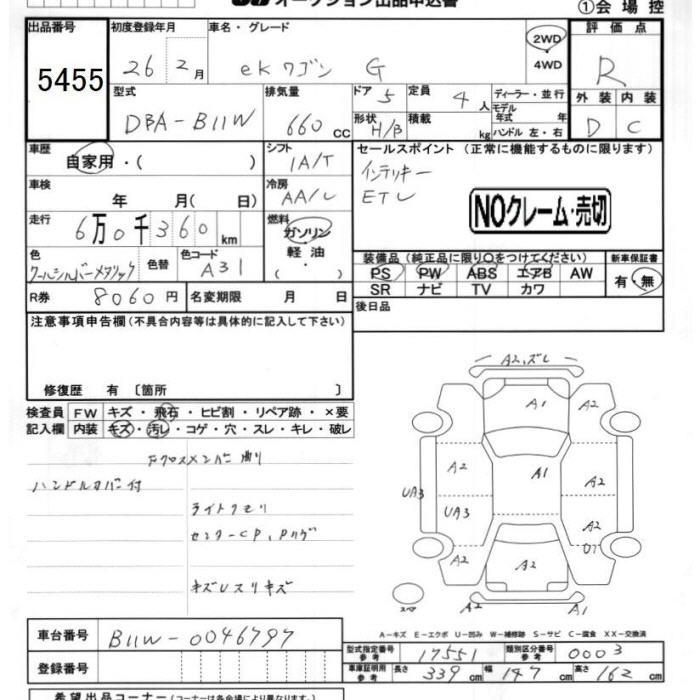 オークション出品申込書 ①会場控
出品番号 初度登録年月 車名・グレード 評価点
5455 26 2月 ekワゴン G 2WD 4WD R
型式 排気量 ドア 5 定員 4人 ディーラー・並行 外装 内装
DBA-B11W 660cc 形状 H/B 積載 kg モデル年式 年 ハンドル 左・右 D C
車歴 自家用・( ) シフト 1A/T セールスポイント (正常に機能するものに限ります)
車検 年 月( 日) 冷房 AA/C インテリキー
ETC
走行 6万0千360km 燃料 ガソリン・軽油・( ) NOクレーム・売切
色 クールシルバーメタリック 色替 色コード A31 装備品(純正品に限り○をつけてください) 新車保証書
PS PW ABS エアB AW 有・無
SR ナビ TV カワ
R券 8060円 名変期限 月 日 後日品
注意事項申告欄(不具合内容等は具体的に記入して下さい)
修復歴 有 〔箇所 〕
検査員 FW キズ・飛石・ヒビ割・リペア跡・×要
記入欄 内装 キズ・汚レ・コゲ・穴・スレ・キレ・破レ
Fクロスメンバー曲り
ハンドルカバー付
ライトクモリ
センターCP、Pハゲ
キズUスリキズ
A2,ズレ
A1 A2
A2 A1
UA3 UA3 A2
A2 A2
A2 A1
スペア
A-キズ E-エクボ U-凹み W-補修跡 S-サビ C-腐食 XX-交換済
車台番号 B11W-0046797 型式指定番号 参考 17551 類別区分番号 参考 0003
登録番号 車庫証明用 参考 長さ 339cm 幅 147cm 高さ 162cm
希望出品コーナー(コーナー名は各会場により異なります)